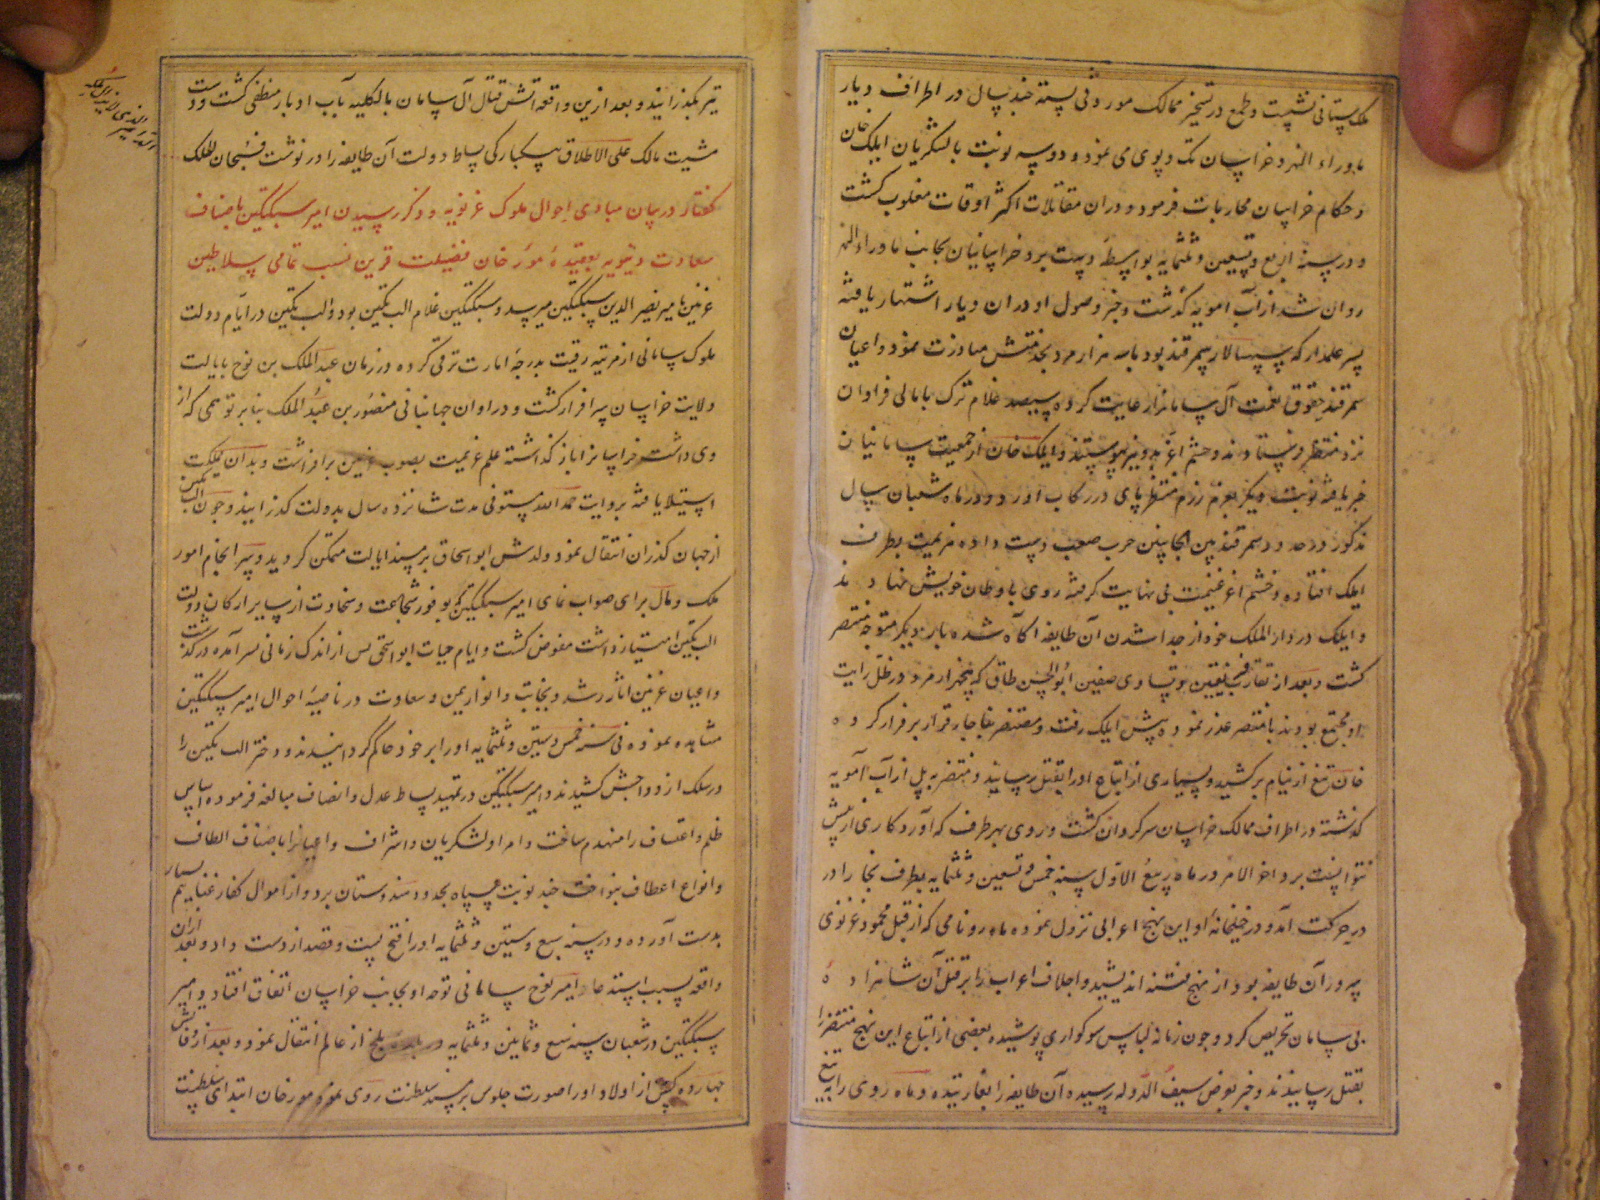 ملک ستانی نشست و طمع در تسخیر ممالک موروثی بسته چند سال در اطراف دیار
ماوراء النهر و خراسان تک و پوی می نمود و دو سه نوبت با لشکریان ایلک خان
و حکام خراسان محاربات فرمود و در ان مقاتلات اکثر اوقات مغلوب کشت
و در سنهٔ اربع و تسعین و ثلثمایه بواسطهٔ دست برد خراسانیان بجانب ماوراء النهر
روان شد از آب امویه کذشت و خبر وصول او در ان دیار اشتهار یافته
پسر علمدار که سپهسالار سمرقند بود با سه هزار مرد بخدمتش مبادرت نمود و اعیان
سمرقند حقوق نعمت آل سامانرا رعایت کرده سیصد غلام ترک با مالی فراوان
نزد منتصر فرستادند و حشم اغز بدو نیز پیوستند و ایلک خان از جمعیت سامانیان
خبر یافته نوبت دیکر بعزم رزم منتصر پای در رکاب اورد و در ماه شعبان سال
مذکور در حدود سمرقند بین الجانبین حرب صعب دست داده هزیمت بطرف
ایلک افتاده و حشم اغز غنیمت بی نهایت کرفته روی باوطان خویش نهادند
و ایلک در دار الملک خود از جدا شدن آن طایفه اکاه شده بار دیکر متوجه منتصر
کشت و بعد از تقارب فئتین و تساوی صفین ابو الحسن طاق که پنجهزار مرد در ظل رایت
او مجتمع بودند با منتصر غدر نموده پیش ایلک رفت و منتصر بناجار قرار بر فرار کرده
خان تیغ از نیام برکشید و بسیاری از اتباع او را بقتل رسانید و منتصر به پل از آب آمویه
کذشته در اطراف ممالک خراسان سرکردان کشت و روی بهر طرف که آورد کاری از پیش
نتوانست برد و اخر الامر در ماه ربیع الاول سنه خمس و تسعین و ثلثمایه بطرف بخارا در
در حرکت آمد و در خیلخانهٔ او ابن بهیج اعرابی نزول نموده ماه رو نامی که از قبل محمود غزنوی
سرور آن طایفه بود از نهج فتنه اندیشید و اجلاف اعراب را بر قتل آن شاهزاده
بی سامان تحریص کرد و جون زمانه لباس سوکواری پوشیده بعضی از اتباع ابن بهیج منتصر را
بقتل رسانیدند و خبر بعرض سیف الدوله رسیده آن طایفه را بغارتیده و ماه روی را به تیغ
تیز بکذرانید و بعد ازین واقعه اتش قتال آل سامان بالکلیه بآب ادبار منطفی کشت و دست
مشیت مالک علی الاطلاق بیکبارکی بساط دولت آن طایفه را در نوشت فسبحان الملک
کفتار در بیان مبادی احوال ملوک غزنویه و ذکر رسیدن امیر سبکتکین باصناف
سعادت دنیویه بعقیدهٔ مورخان فضیلت قرین نسب تمامی سلاطین
غزنین بامیر نصیر الدین سبکتکین میرسد و سبکتکین غلام الب تکین بود و الب تکین در ایام دولت
ملوک سامانی از مرتبه رقیت بدرجهٔ امارت ترقی کرده در زمان عبد الملک بن نوح بایالت
ولایت خراسان سرافراز کشت و در اوان جهانبانی منصور بن عبد الملک بنا بر توهمی که از
وی داشت خراسانرا باز کذاشته علم عزیمت بصوب غزنین برافراشت و بدان مملکت
استیلا یافته بروایت حمد الله مستوفی مدت شانزده سال بدولت کذرانید و جون الب تکین
از جهان کذران انتقال نمود ولدش ابو اسحاق بر مسند ایالت متمکن کردید و سر انجام امور
ملک و مال برای صواب نمای امیر سبکتکین که بوفور شجاعت و سخاوت از سایر ارکان دولت
الب تکین امتیاز داشت مفوض کشت و ایام حیات ابو اسحق پس از اندک زمانی بسر آمده درکذشت
و اعیان غزنین اثار رشد و نجابت و انوار یمن و سعادت در ناصیهٔ احوال امیر سبکتکین
مشاهده نموده فی سنه خمس و ستین و ثلثمایه او را بر خود حاکم کردانیدند و دختر الب تکین را
در سلک ازدواجش کشیدند و امیر سبکتکین در تمهید بساط عدل و انصاف مبالغه فرموده اساس
ظلم و اعتساف را منهدم ساخت و امرا و لشکریان و اشراف و اعیانرا باصناف الطاف
و انواع اعطاف بنواخت چند نوبت سپاه بحدود هندوستان برد و از اموال کفار غنایم بسیار
بدست آورده و در سنه سبع و ستین و ثلثمایه او را فتح بست و قصدار دست داد و بعد ازان
واقعه بسبب استدعاء امیر نوح سامانی توجه او بجانب خراسان اتفاق افتاد و امیر
سبکتکین در شعبان سنه سبع و ثمانین و ثلثمایه در بلده بلخ از عالم انتقال نمود و بعد از وفاتش
چهارده کس از اولاد او را صورت جلوس بر مسند سلطنت روی نمود مورخان ابتدای سلطنت